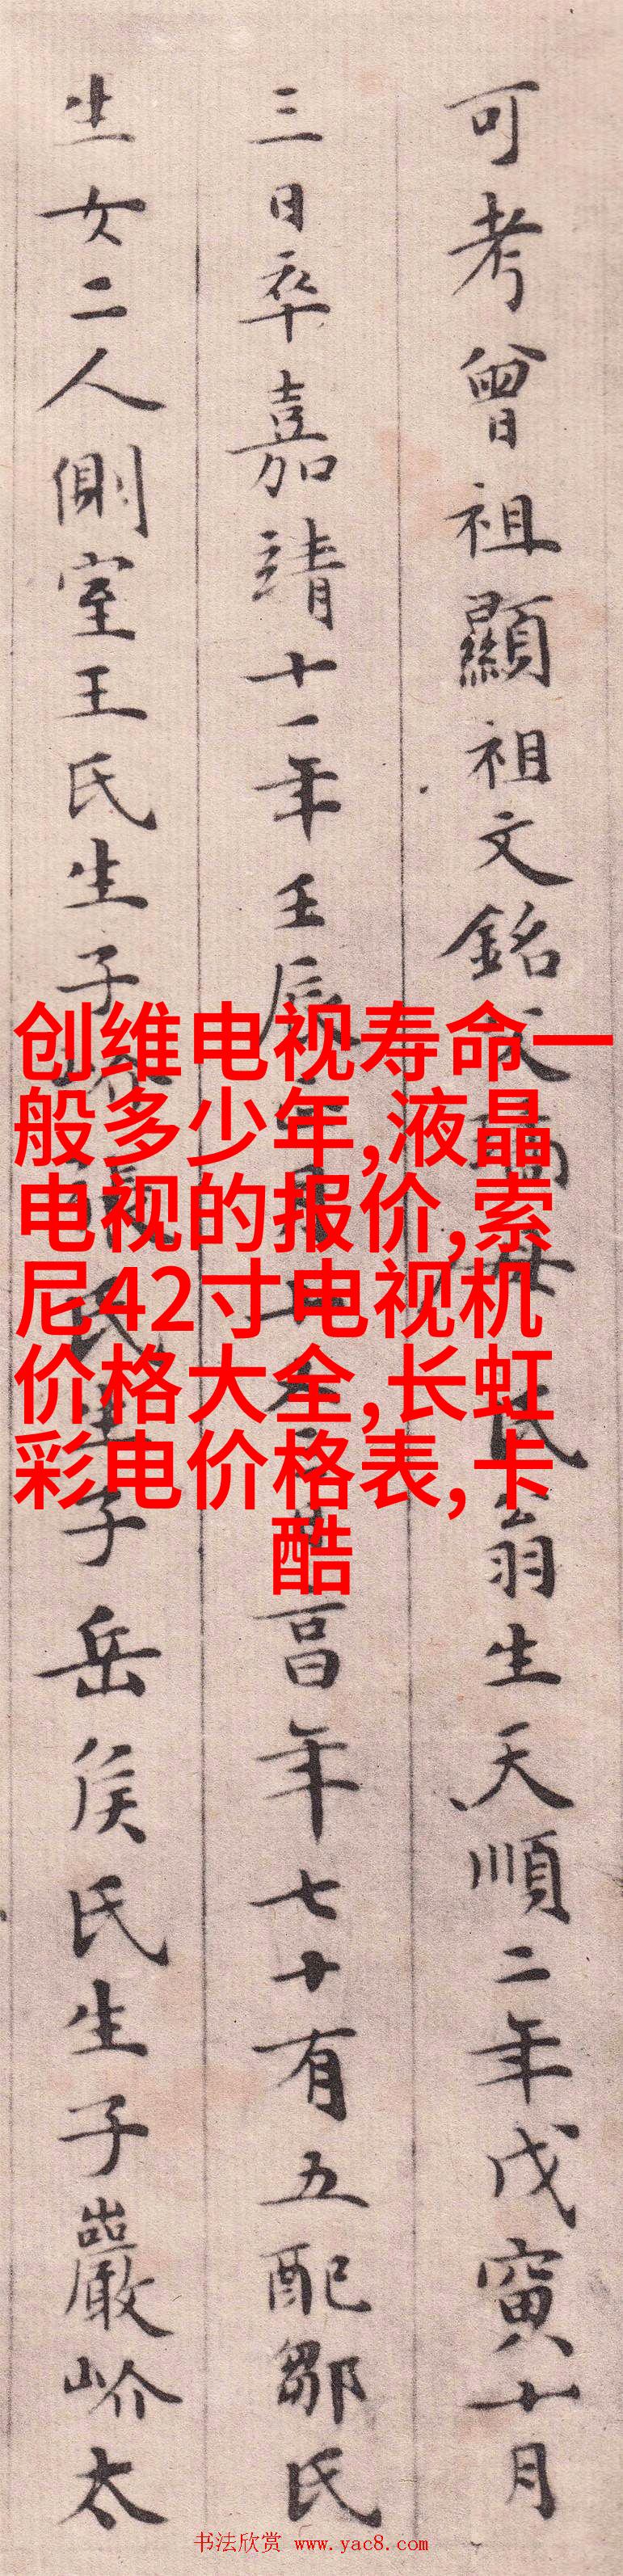 可考曾祖顯祖文銘
氏翁生天順二年戊寅十月
三日卒嘉靖十一年壬辰
年七十有五配鄒氏
生女二人側室王氏生子
氏生子岳侯氏生子巖岕太
创维电视寿命一
般多少年,液晶
电视的报价,索
尼42寸电视机
价格大全,长虹
彩电价格表,卡
酷
书法欣赏 www.yac8.com